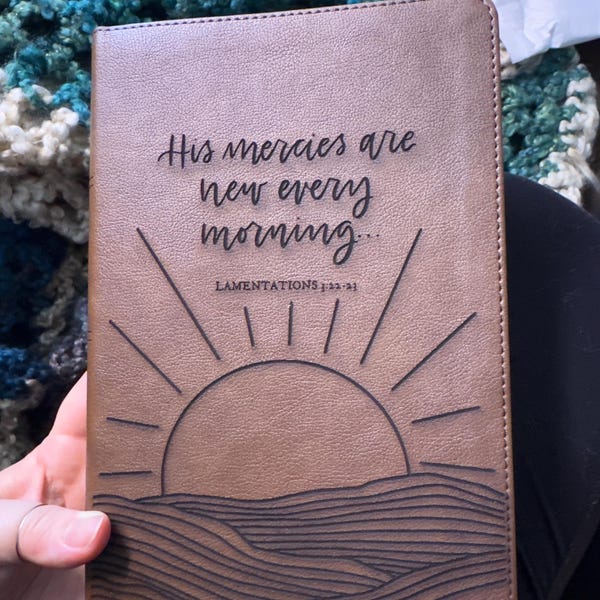 His mercies are
new every
morning...
LAMENTATIONS 3:22-23